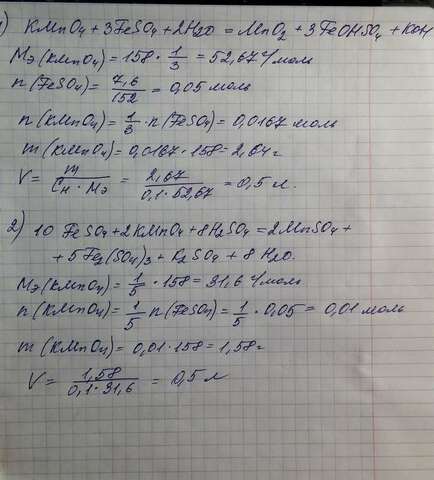 1) KMnO4 + 3FeSO4 + 2H2O = MnO2 + 3FeOHSO4 + KOH
Mэ(KMnO4) = 158 · 1/3 = 52,67 г/моль
n(FeSO4) = 7,6/152 = 0,05 моль
n(KMnO4) = 1/3 · n(FeSO4) = 0,0167 моль
m(KMnO4) = 0,0167 · 158 = 2,64 г
V = m/(Cн · Mэ) = 2,67/(0,1 · 52,67) = 0,5 л.
2) 10 FeSO4 + 2KMnO4 + 8H2SO4 = 2MnSO4 +
+ 5Fe2(SO4)3 + K2SO4 + 8H2O.
Mэ(KMnO4) = 1/5 · 158 = 31,6 г/моль
n(KMnO4) = 1/5 n(FeSO4) = 1/5 · 0,05 = 0,01 моль
m(KMnO4) = 0,01 · 158 = 1,58 г
V = 1,58/(0,1 · 31,6) = 0,5 л